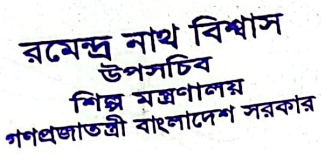 রমেন্দ্র নাথ বিশ্বাস
উপসচিব
শিল্প মন্ত্রণালয়
গণপ্রজাতন্ত্রী বাংলাদেশ সরকার